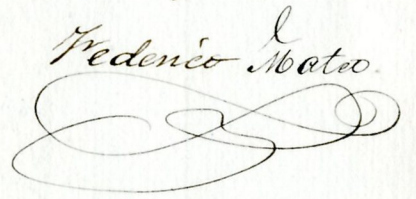 Federico Mateo